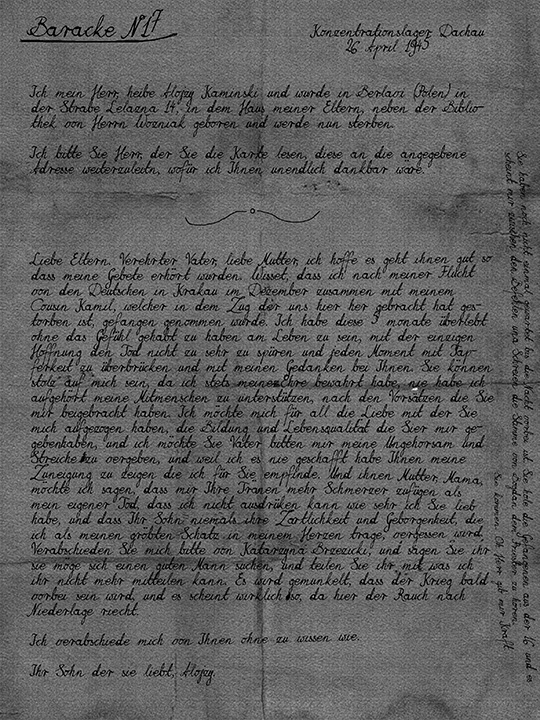 Baracke N17
Konzentrationslager, Dachau
26 April 1945
Ich mein Herr, heibe Alojzy Kaminski und wurde in Berlaoi (Polen) in
der Strabe Lelazna 14, in dem Haus meiner Eltern, neben der Biblio-
thek von Herrn Wozniak geboren und werde nun sterben.
Ich bitte Sie Herr, der Sie die Karte lesen, diese an die angegebene
Adresse weiterzuleitn, wofür ich Ihnen unendlich dankbar wäre.
Liebe Eltern. Verehrter Vater, liebe Mutter, ich hoffe es geht ihnen gut so
dass meine Gebete erhört wurden. Wisset, dass ich nach meiner Flucht
von den Deutschen in Krakau im Dezember zusammen mit meinem
Cousin Kamil, welcher in dem Zug der uns hier her gebracht hat ges-
torben ist, gefangen genommen wurde. Ich habe diese 5 monate überlebt
ohne das Gefühl gehabt zu haben am Leben zu sein, mit der einzigen
Hoffnung den Tod nicht zu sehr zu spüren und jeden Moment mit Tap-
ferkeit zu überbrücken und mit meinen Gedanken bei Ihnen. Sie können
stolz auf mich sein, da ich stets meine Ehre bewahrt habe, nie habe ich
aufgehört meine Mitmenschen zu unterstützen, nach den Vorsätzen die Sie
mir beigebracht haben. Ich möchte mich für all die Liebe mit der Sie
mich aufgezogen haben, die Bildung und Lebensqualität die Sier mir ge-
gebenhaben, und ich möchte Sie Vater bitten mir meine Ungehorsam und
Streiche zu vergeben, und weil ich es nie geschafft habe Ihnen meine
Zuneigung zu zeigen die ich für Sie empfinde. Und ihnen Mutter, Mama,
möchte ich sagen, dass mir Ihre Tränen mehr Schmerzer zufügen als
mein eigener Tod, dass ich nicht ausdrüken kann wie sehr ich Sie lieb
habe, und dass Ihr Sohn niemals ihre Zärtlichkeit und Geborgenheit, die
ich als meinen größten Schatz in meinem Herzen trage, vergessen wird.
Verabschieden SIe mich bitte von Katarzyna Brzezicki, und sagen Sie ihr
sie möge sich einen guten Mann suchen, und teilen Sie ihr mit was ich
ihr nicht mehr mitteilen kann. Es wird gemunkelt, dass der Krieg bald
vorbei sein wird, und es scheint wirklich so, da hier der Rauch nach
Niederlage riecht.
Ich verabschiede mich von Ihnen ohne zu wissen wie.
Ihr Sohn der sie liebt, Alojzy.
Sie haben noch nicht einmal gewartet bis die Nacht vorbei ist. Sie hole die Gefangenen aus der 16 und es
scheint mir zwischen den Befehlen und Schreie die Stimme von Bogdan dem Anwalten zu hören.
Sie kommen. Oh Herr gib mir Kraft.